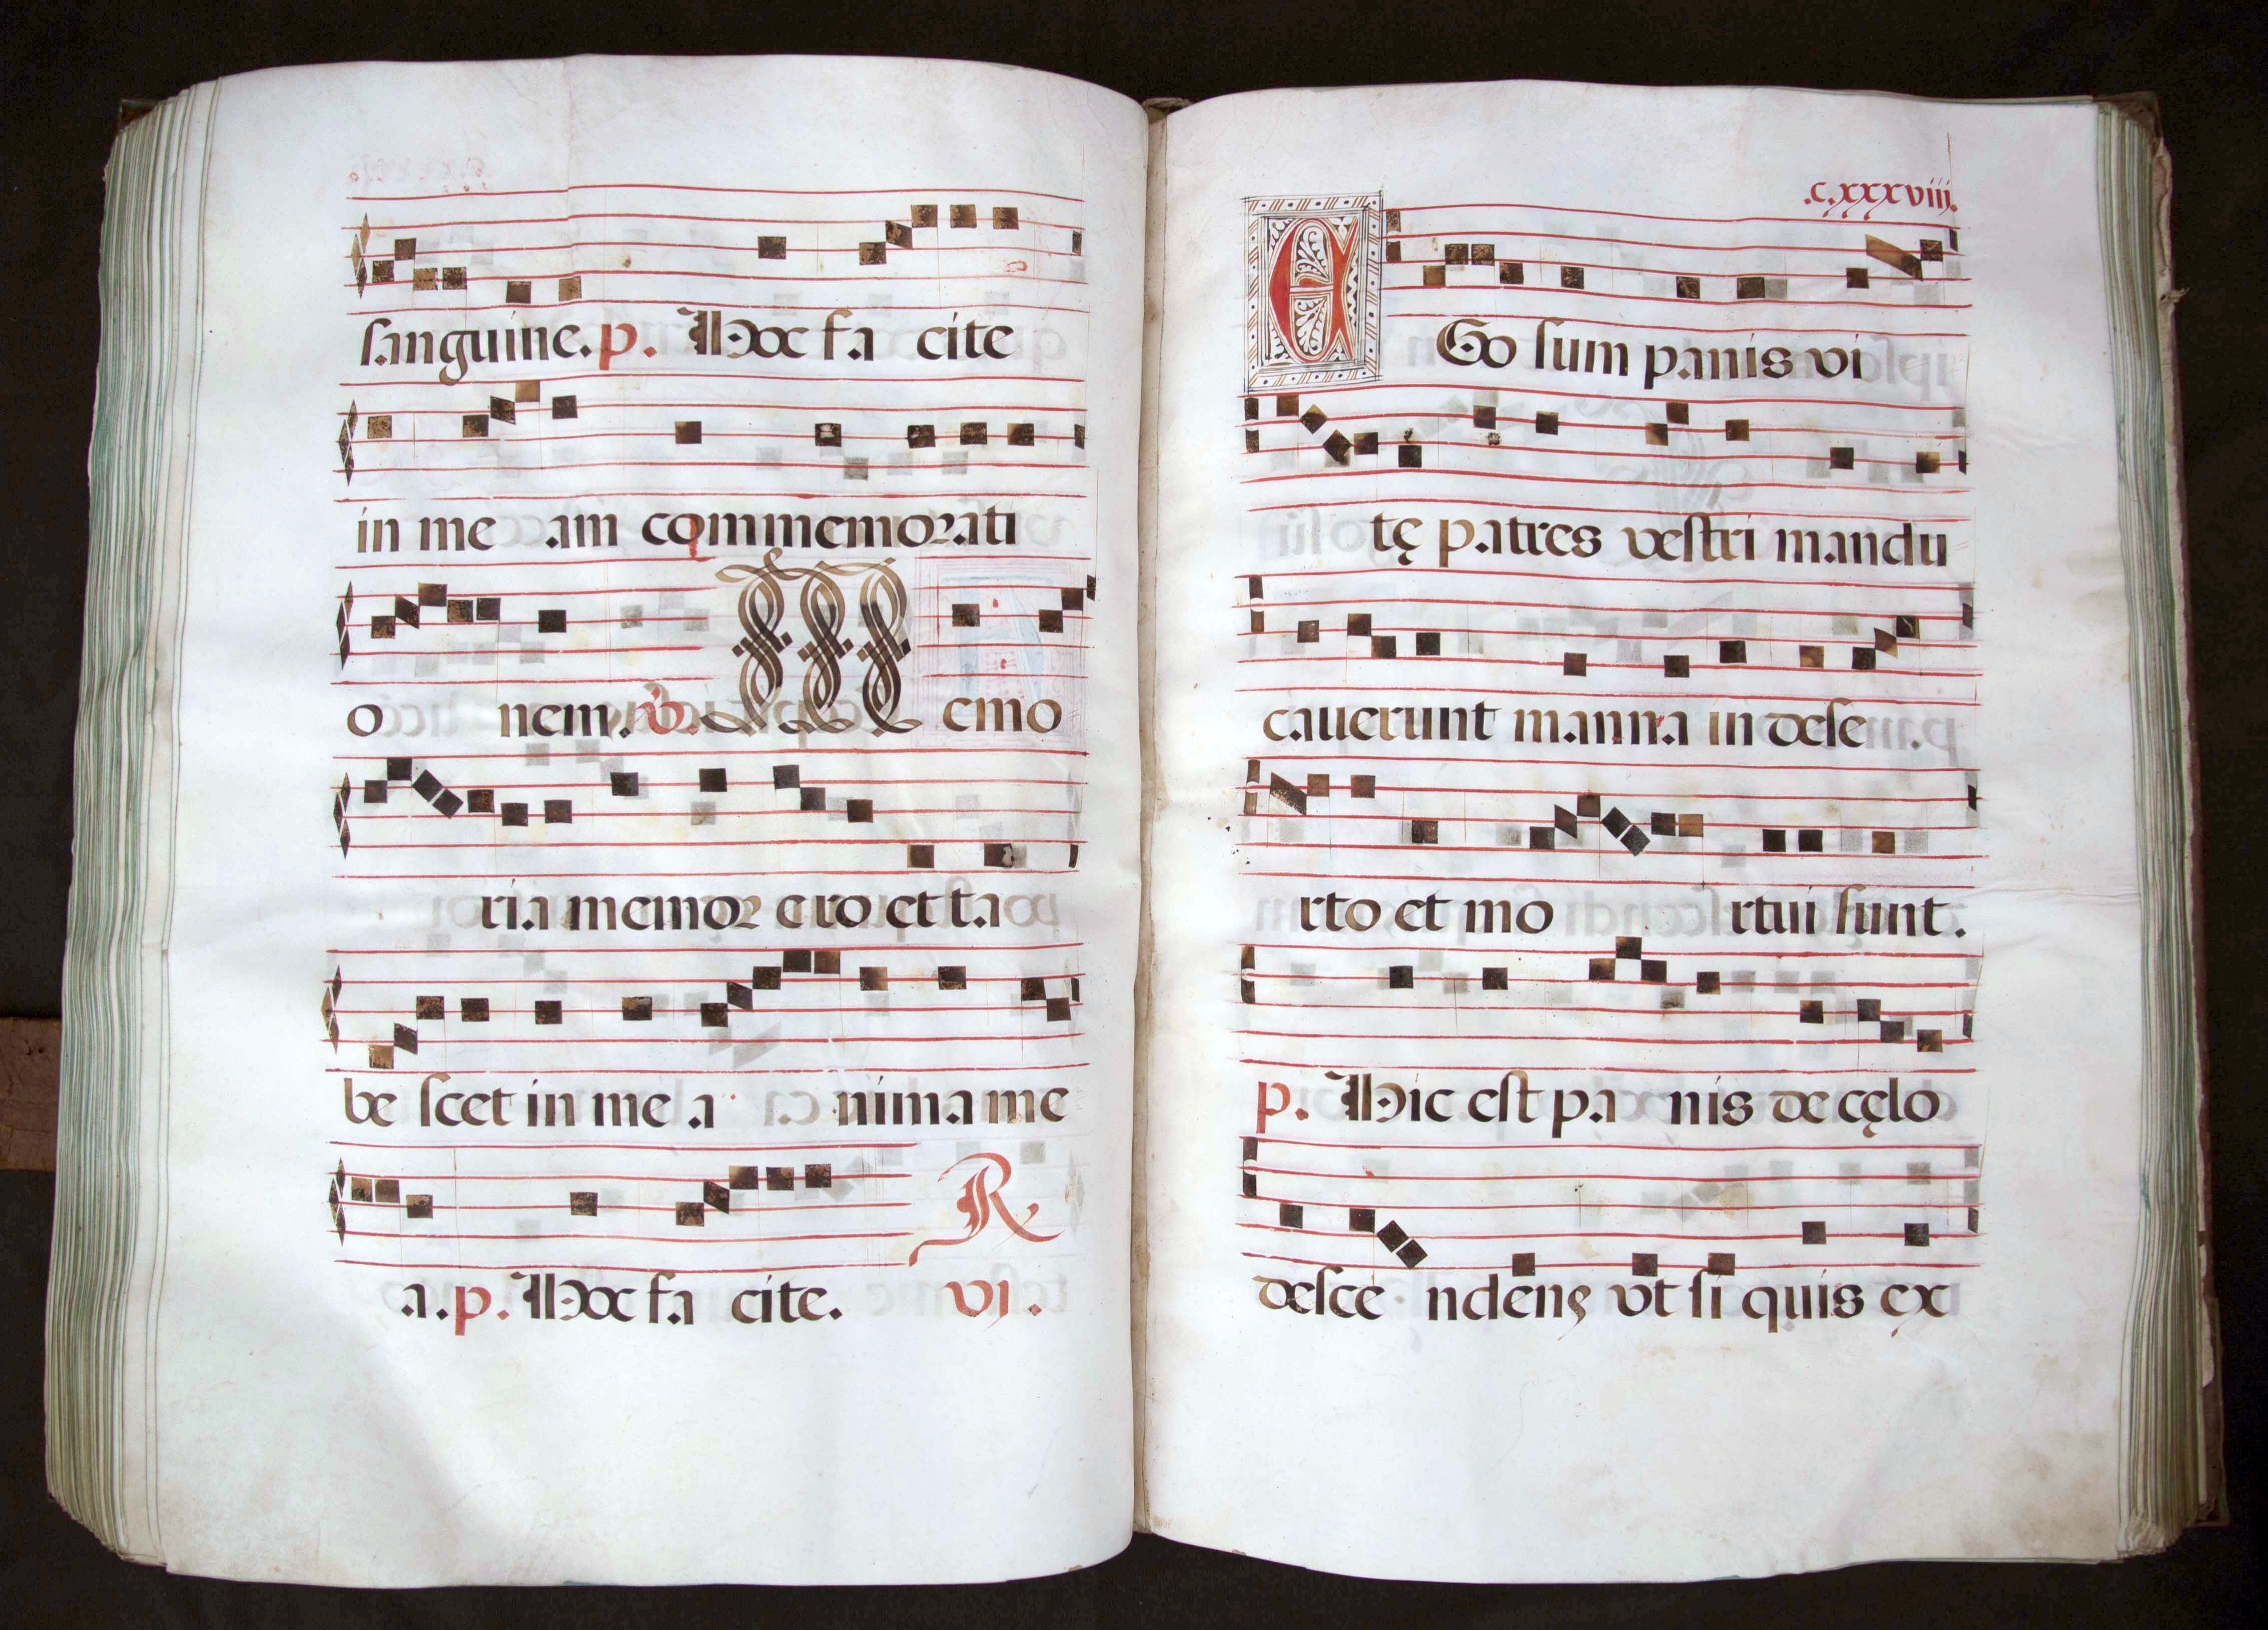 sanguine. p. Hoc fa cite
in me am commemorati
o nem. V. M emo
ria memor ero et ta
be scet in me a nima me
a. p. Hoc fa cite. R vi.
.c.xxxviii.
E Go sum panis vi
tę patres vestri mandu
cauerunt manna in dese
rto et mo rtui sunt.
p. Hic est pa nis de cęlo
desce ndens vt si quis ex